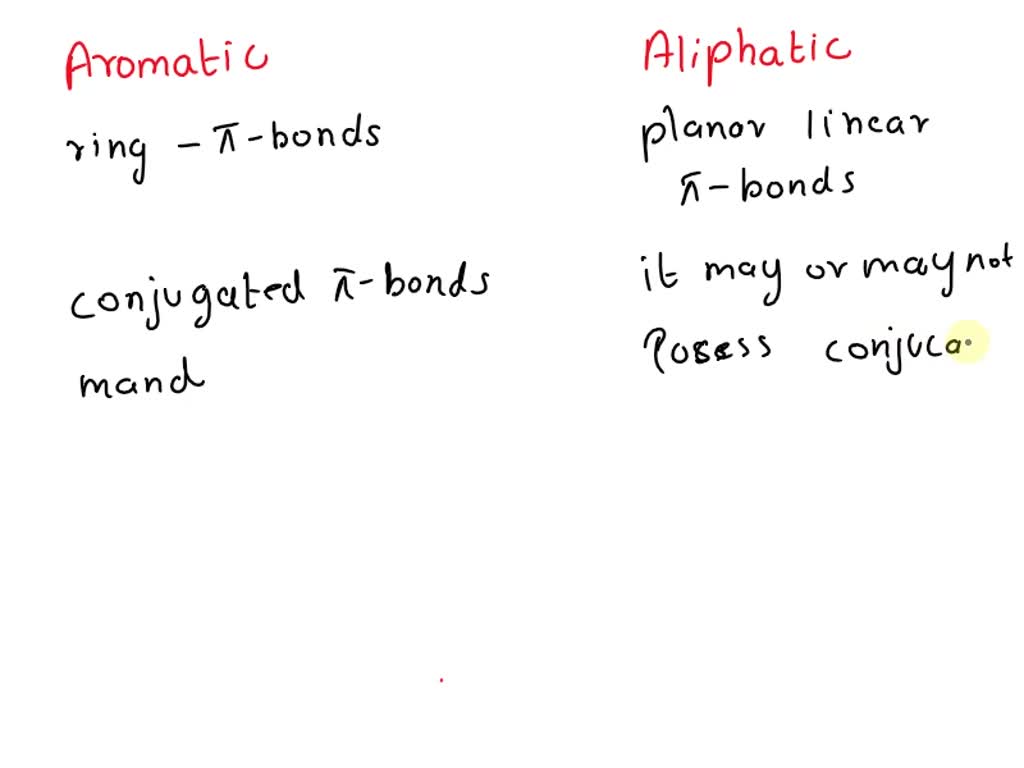 Aromatic
ring - π-bonds
conjugated π-bonds
mand
Aliphatic
planor linear
π-bonds
it may or may not
Posess conjuca